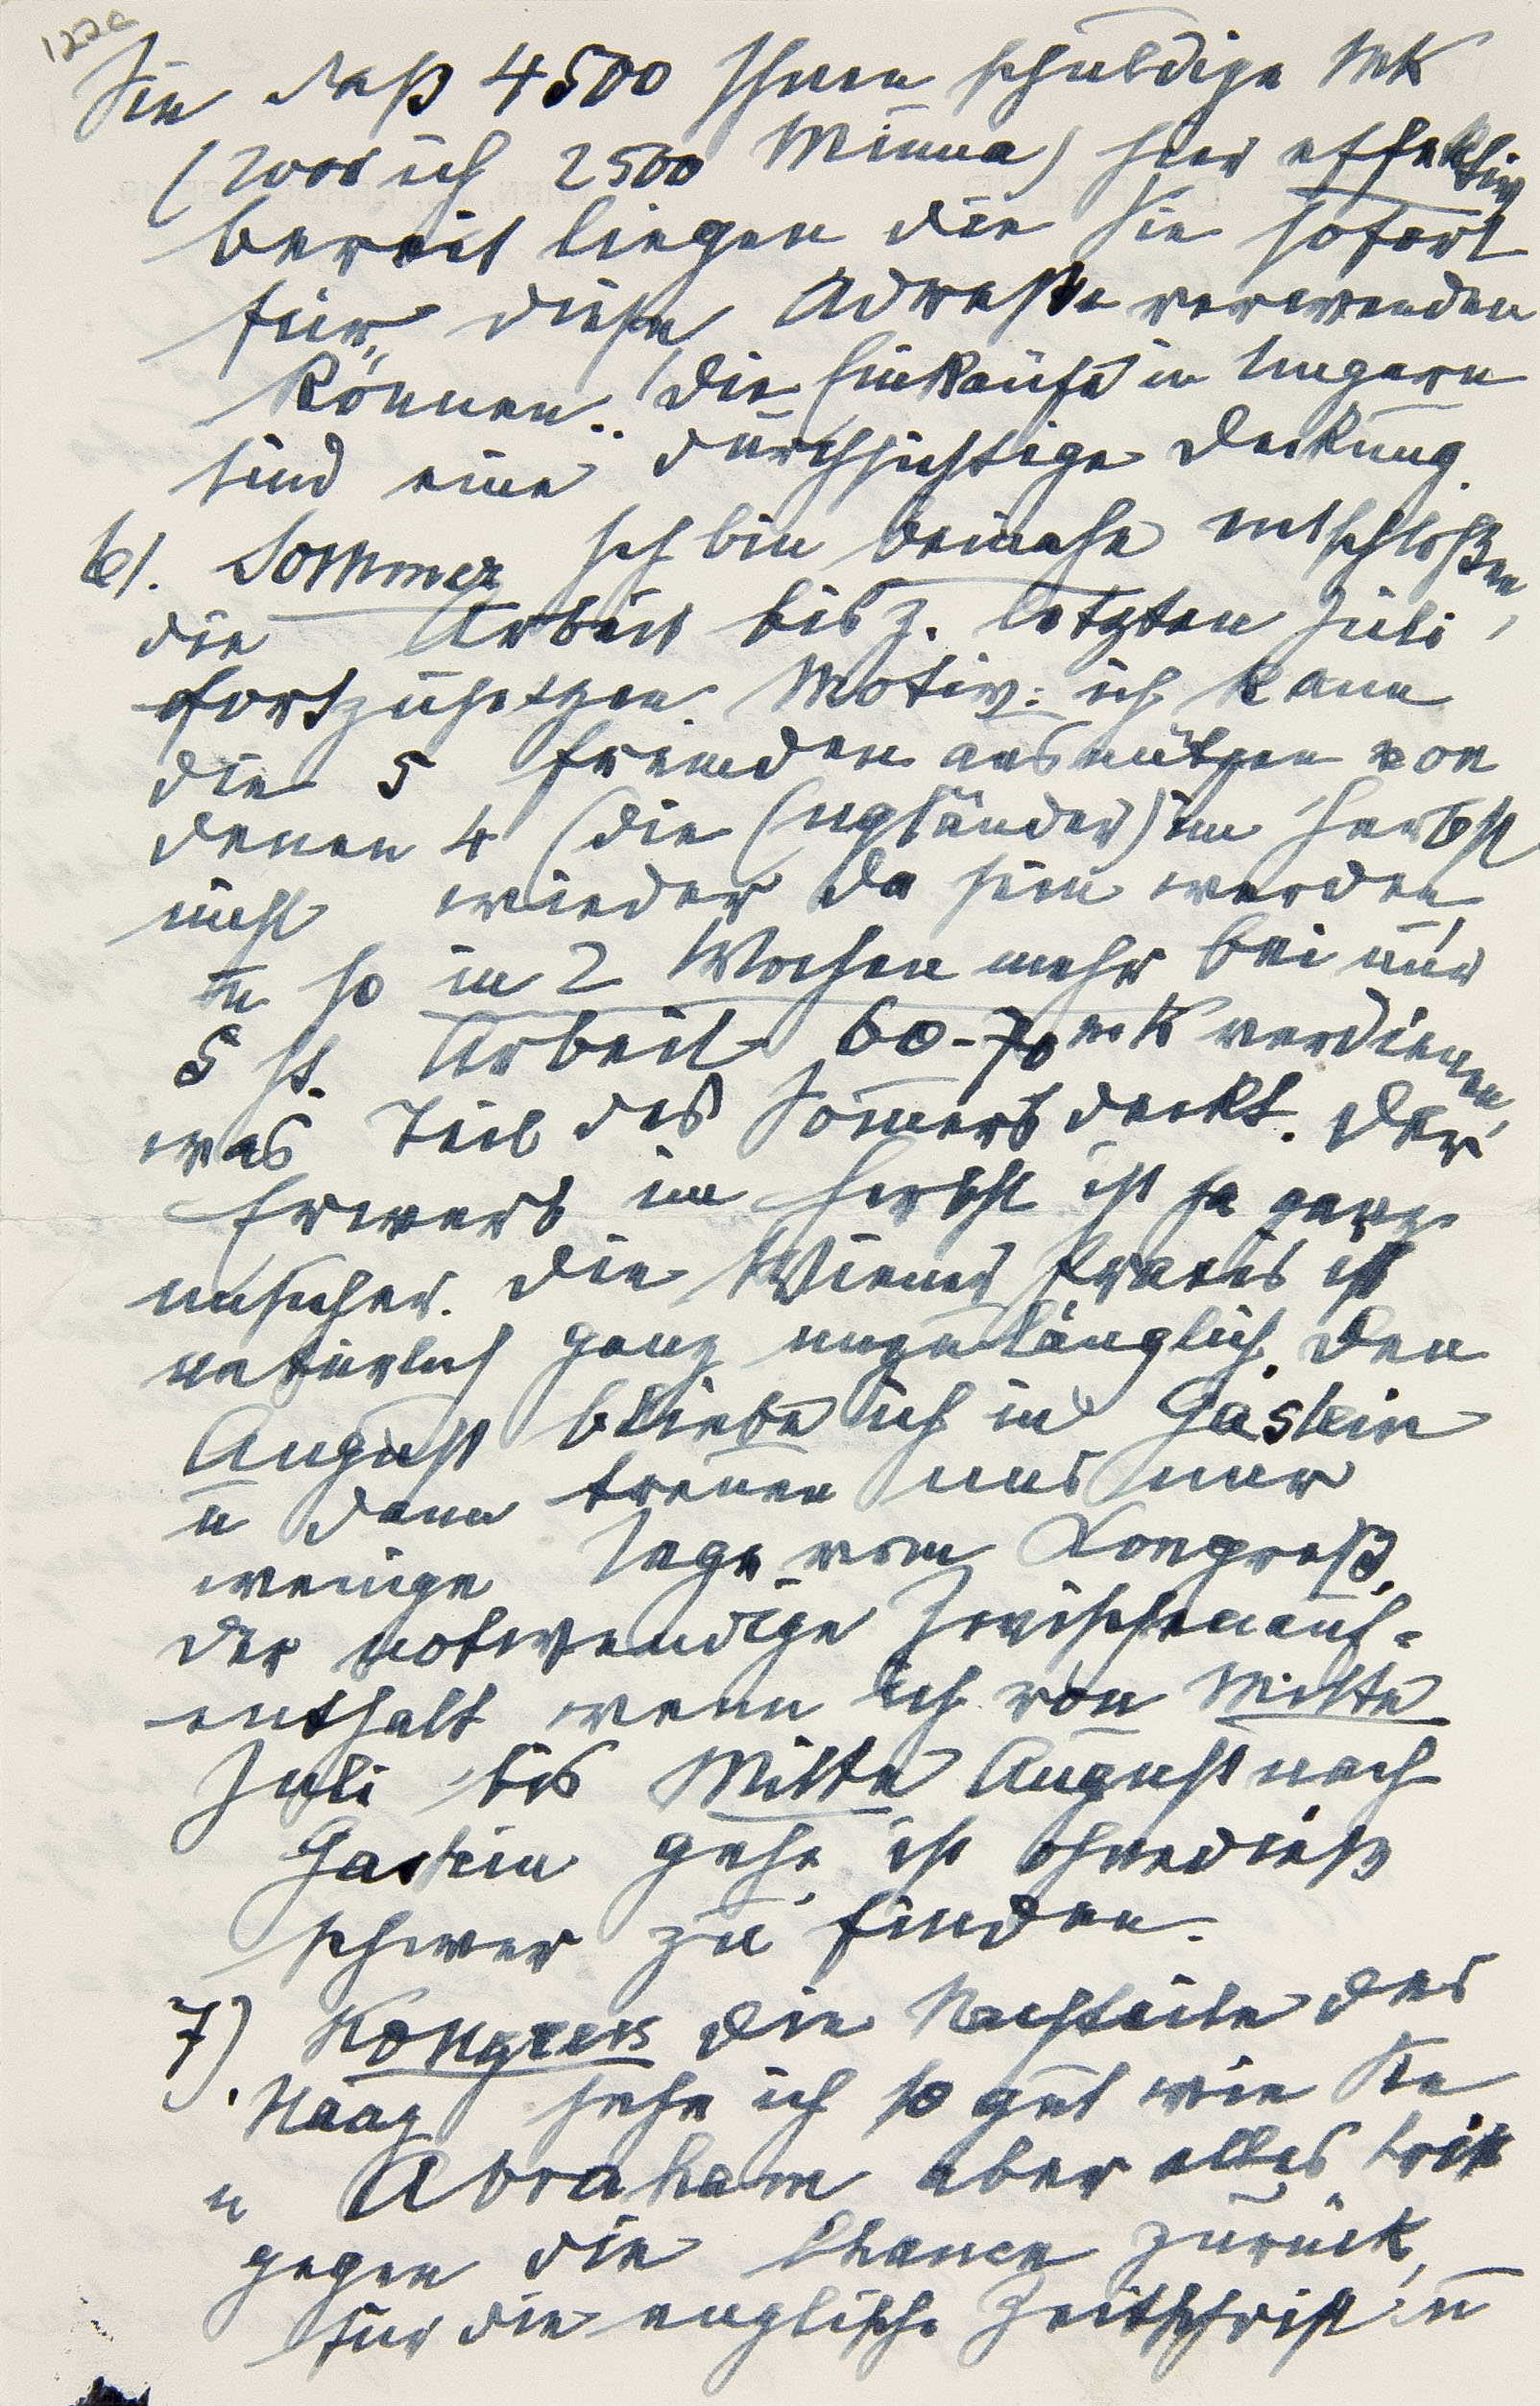 122c
Sie daß 4500 Ihnen schuldige MK
(wor ich 2500 Minna) hier effektiv
bereit liegen die Sie sofort
für diese Adresse verwenden
können. Die Einkäufe in Ungarn
sind eine durchsichtige Deckung.
6). Sommer Ich bin beinahe entschloßen,
die Arbeit bis z. letzten Juli
fortzusetzen. Motiv: ich kann
die 5 Fremden ausnützen von
denen 4 (die Engländer) im Herbst
nicht wieder da sein werden,
u so in 2 Wochen mehr bei nur
5 st. Arbeit 60-70 mK verdienen,
was Teil des Sommers deckt. Der
Erwerb im Herbst ist ja ganz
unsicher. Die Wiener Praxis ist
natürlich ganz unzulänglich. Den
August bliebe ich in Gastein
u dann trennen uns nur
wenige Tage vom Kongreß.
Der notwendige Zwischenauf-
enthalt wenn ich von Mitte
Juli bis Mitte August nach
Gastein gehe ist ohnedieß
schwer zu finden.
7). Kongress Die Nachteile des
Haag sehe ich so gut wie Sie
u Abraham aber alles tritt
gegen die Chance zurück,
für die englische Zeitschrift u